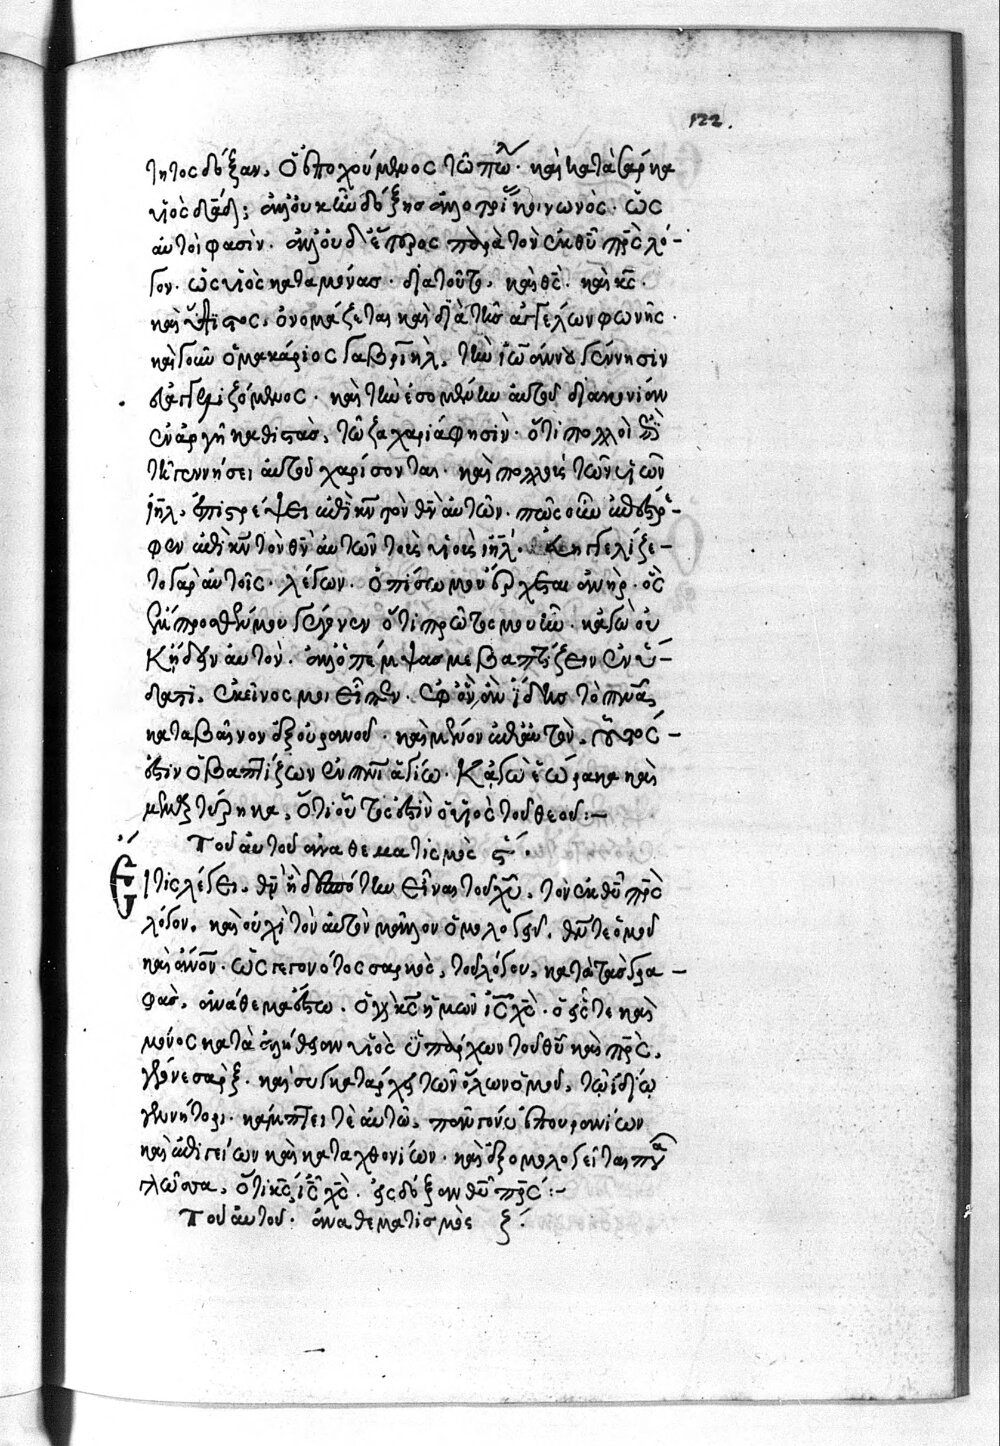 122.
τητος δόξαν. Ὁ ἐποχούμενος τῷ πώλ. καὶ κατὰ σάρκα
υἱὸς δαδ; ἀλλ' οὐκ ὢν δόξης ἀλλοτρί κοινωνὸς. ὥς
αὐτοί φασὶν. ἀλλ' οὐδ' ἕτερος παρὰ τὸν ἐκ θῦ πρς λό-
γον. ὡς υἱὸς καταμόνας. διατοῦτο. καὶ θς. καὶ κς.
καὶ ὕψιστος. ὀνομάζεται καὶ διὰ τῆς ἀγγέλων φωνῆς.
καὶ γοῦν ὁ μακάριος γαβριὴλ. τὴν ἰωάννου γέννησιν
εὐαγγελιζόμενος. καὶ τὴν ἐσομένην αὐτοῦ διακονίαν
ἐναργῆ καθιστὰς. τῷ ζαχαρία φησὶν. ὅτι πολλοὶ ἐπὶ
τῇ γεννήσει αὐτοῦ χαρίσονται. καὶ πολλοὺς τῶν υἱῶν
ιηλ. ἐπιστρέψει ἐπὶ κν τὸν θν αὐτῶν. πῶς οὖν ἐπέστρε-
φεν ἐπὶ κν τὸν θν αὐτῶν τοὺς υἱοὺς ιηλ. εὐηγγελίζε-
το γὰρ αὐτοῖς. λέγων. ὀπίσω μου ἔρχεται ἀνὴρ. ὃς
ἔμπροσθέν μου γέγονεν ὅτι πρῶτος μου ἦν. κἀγὼ οὐ
κ ᾔδειν αὐτὸν. ἀλλ' ὁ πέμψας με βαπτίζειν ἐν ὕ-
δατι. ἐκεῖνος μοι εἶπεν. ἐφ' ὃν ἂν ἴδῃς τὸ πνα
καταβαῖνον ἐξ οὐρανοῦ. καὶ μένον ἐπ' αὐτὸν. οὗτός-
ἐστιν ὁ βαπτίζων ἐν πνι ἁγίω. Κἀγὼ ἑώρακα καὶ
μεμαρτύρηκα. ὅτι οὗτος ἐστὶν ὁ υἱὸς τοῦ θεοῦ:-
Τοῦ αὐτοῦ ἀναθεματισμὸς ϛ´.
Εἴ τις λέγει. θν ἢ δεσπότην εἶναι τοῦ χυ. τὸν ἐκ θυ πρς
λόγον. καὶ οὐχὶ τὸν αὐτὸν μᾶλλον ὁμολογεῖ. θν τε ὁμοῦ
καὶ ἄνον. ὡς γεγονότος σαρκὸς. τοῦ λόγου. κατὰ τὰς γρα-
φὰς. ἀνάθεμα ἔστω. Ὁ γὰρ κς ἡμῶν ις χς. ὁ εἷς τε καὶ
μόνος κατὰ ἀλήθειαν υἱὸς ὑπάρχων τοῦ θυ καὶ πρς.
γέγονε σὰρξ. καὶ συγκατάρχει τῶν ὅλων ὁμοῦ. τῷ ἰδίῳ
γεννήτορι. κάμπτει τὲ αὐτῶ. πᾶν γόνυ ἐπουρανίων
καὶ ἐπιγείων καὶ καταχθονίων. καὶ ἐξομολογεῖται πᾶσα
γλῶσσα. ὅτι κς ις χς. εἰς δόξαν θυ πρς:-
Τοῦ αὐτοῦ. ἀναθεματισμὸς ζ´.